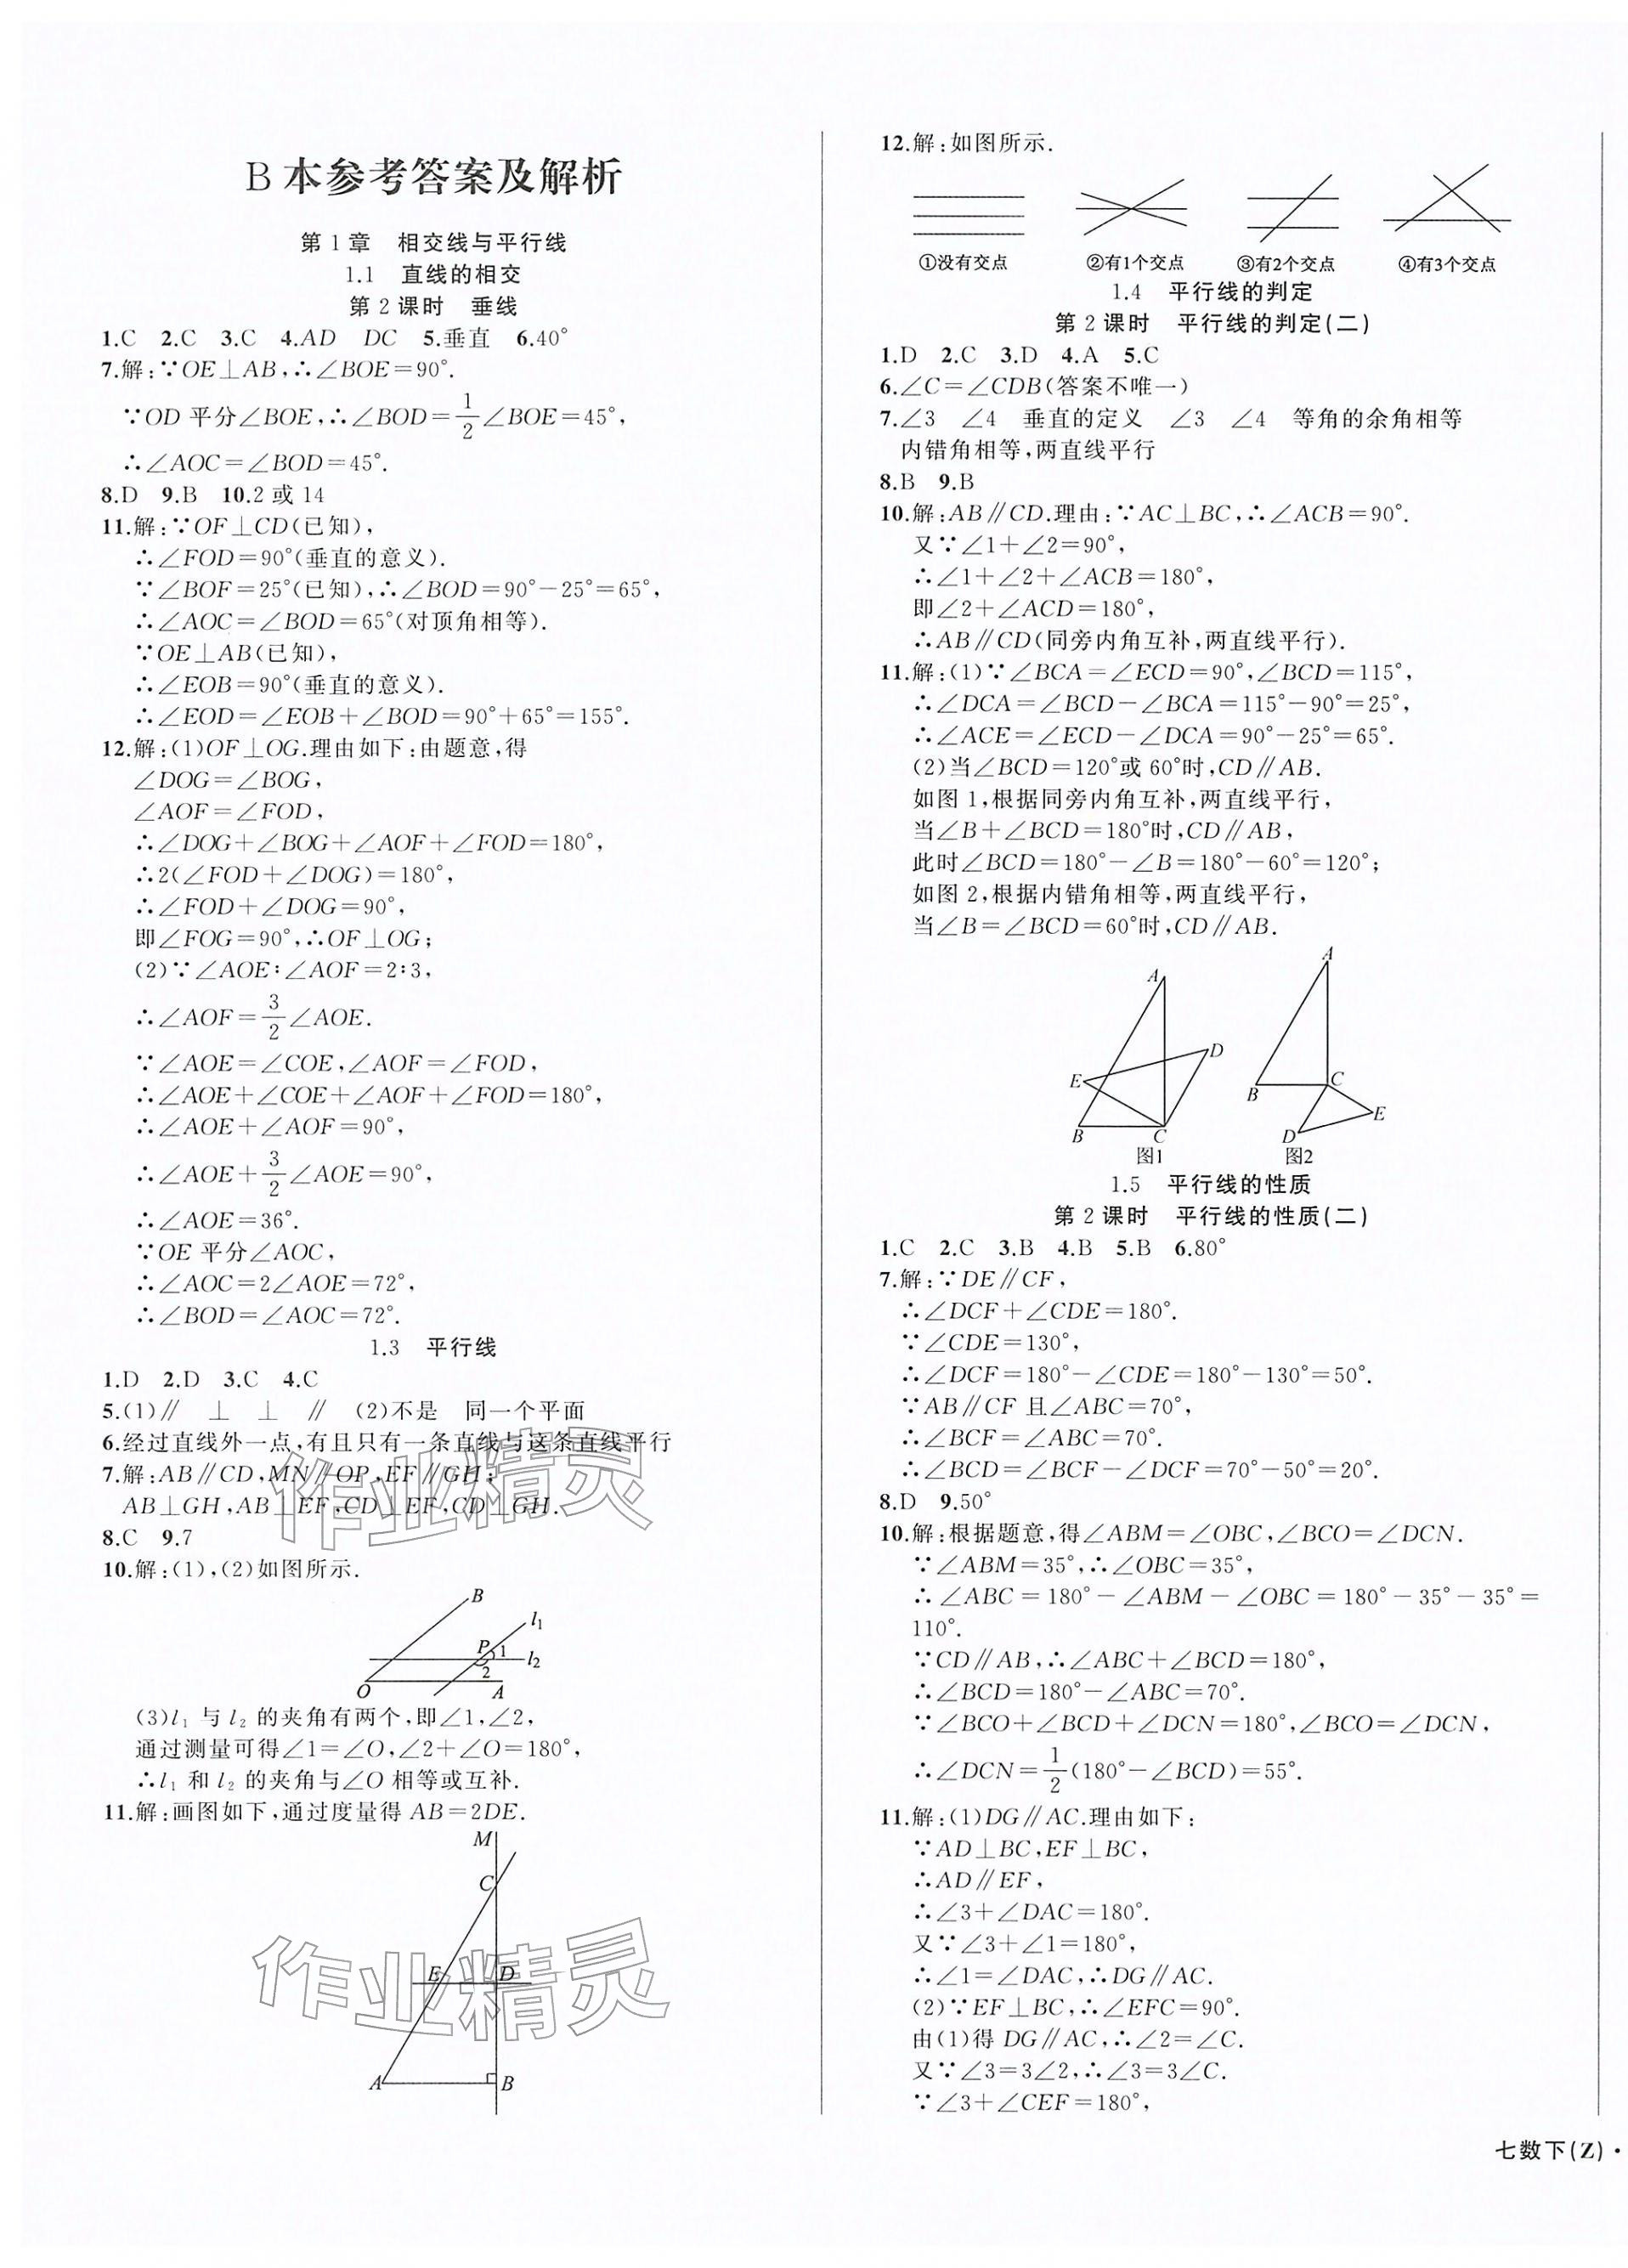 B本参考答案及解析
第1章 相交线与平行线
1.1 直线的相交
第2课时 垂线
1.C 2.C 3.C 4.AD DC 5.垂直 6.40°
7.解:∵OE⊥AB,∴∠BOE=90°.
∵OD平分∠BOE,∴∠BOD=1/2∠BOE=45°,
∴∠AOC=∠BOD=45°.
8.D 9.B 10.2或14
11.解:∵OF⊥CD(已知),
∴∠FOD=90°(垂直的意义).
∵∠BOF=25°(已知),∴∠BOD=90°-25°=65°,
∴∠AOC=∠BOD=65°(对顶角相等).
∵OE⊥AB(已知),
∴∠EOB=90°(垂直的意义).
∴∠EOD=∠EOB+∠BOD=90°+65°=155°.
12.解:(1)OF⊥OG.理由如下:由题意,得
∠DOG=∠BOG,
∠AOF=∠FOD,
∴∠DOG+∠BOG+∠AOF+∠FOD=180°,
∴2(∠FOD+∠DOG)=180°,
∴∠FOD+∠DOG=90°,
即∠FOG=90°,∴OF⊥OG;
(2)∵∠AOE∶∠AOF=2∶3,
∴∠AOF=3/2∠AOE.
∵∠AOE=∠COE,∠AOF=∠FOD,
∴∠AOE+∠COE+∠AOF+∠FOD=180°,
∴∠AOE+∠AOF=90°,
∴∠AOE+3/2∠AOE=90°,
∴∠AOE=36°.
∵OE平分∠AOC,
∴∠AOC=2∠AOE=72°,
∴∠BOD=∠AOC=72°.
1.3 平行线
1.D 2.D 3.C 4.C
5.(1)∥ ⊥ ⊥ ∥ (2)不是 同一个平面
6.经过直线外一点,有且只有一条直线与这条直线平行
7.解:AB∥CD,MN∥OP,EF∥GH;
AB⊥GH,AB⊥EF,CD⊥EF,CD⊥GH.
8.C 9.7
10.解:(1),(2)如图所示.
B
l₁
P 1
l₂
2
O A
(3)l₁与l₂的夹角有两个,即∠1,∠2,
通过测量可得∠1=∠O,∠2+∠O=180°,
∴l₁和l₂的夹角与∠O相等或互补.
11.解:画图如下,通过度量得AB=2DE.
M
C
E D
A B
作业精灵
作业精灵
12.解:如图所示.
①没有交点 ②有1个交点 ③有2个交点 ④有3个交点
1.4 平行线的判定
第2课时 平行线的判定(二)
1.D 2.C 3.D 4.A 5.C
6.∠C=∠CDB(答案不唯一)
7.∠3 ∠4 垂直的定义 ∠3 ∠4 等角的余角相等
内错角相等,两直线平行
8.B 9.B
10.解:AB∥CD.理由:∵AC⊥BC,∴∠ACB=90°.
又∵∠1+∠2=90°,
∴∠1+∠2+∠ACB=180°,
即∠2+∠ACD=180°,
∴AB∥CD(同旁内角互补,两直线平行).
11.解:(1)∵∠BCA=∠ECD=90°,∠BCD=115°,
∴∠DCA=∠BCD-∠BCA=115°-90°=25°,
∴∠ACE=∠ECD-∠DCA=90°-25°=65°.
(2)当∠BCD=120°或60°时,CD∥AB.
如图1,根据同旁内角互补,两直线平行,
当∠B+∠BCD=180°时,CD∥AB,
此时∠BCD=180°-∠B=180°-60°=120°;
如图2,根据内错角相等,两直线平行,
当∠B=∠BCD=60°时,CD∥AB.
A
D
E
B C
图1
A
B C
D E
图2
1.5 平行线的性质
第2课时 平行线的性质(二)
1.C 2.C 3.B 4.B 5.B 6.80°
7.解:∵DE∥CF,
∴∠DCF+∠CDE=180°.
∵∠CDE=130°,
∴∠DCF=180°-∠CDE=180°-130°=50°.
∵AB∥CF且∠ABC=70°,
∴∠BCF=∠ABC=70°.
∴∠BCD=∠BCF-∠DCF=70°-50°=20°.
8.D 9.50°
10.解:根据题意,得∠ABM=∠OBC,∠BCO=∠DCN.
∵∠ABM=35°,∴∠OBC=35°,
∴∠ABC=180°-∠ABM-∠OBC=180°-35°-35°=
110°.
∵CD∥AB,∴∠ABC+∠BCD=180°,
∴∠BCD=180°-∠ABC=70°.
∵∠BCO+∠BCD+∠DCN=180°,∠BCO=∠DCN,
∴∠DCN=1/2(180°-∠BCD)=55°.
11.解:(1)DG∥AC.理由如下:
∵AD⊥BC,EF⊥BC,
∴AD∥EF,
∴∠3+∠DAC=180°.
又∵∠3+∠1=180°,
∴∠1=∠DAC,∴DG∥AC.
(2)∵EF⊥BC,∴∠EFC=90°.
由(1)得DG∥AC,∴∠2=∠C.
又∵∠3=3∠2,∴∠3=3∠C.
∵∠3+∠CEF=180°,
七数下(Z)·